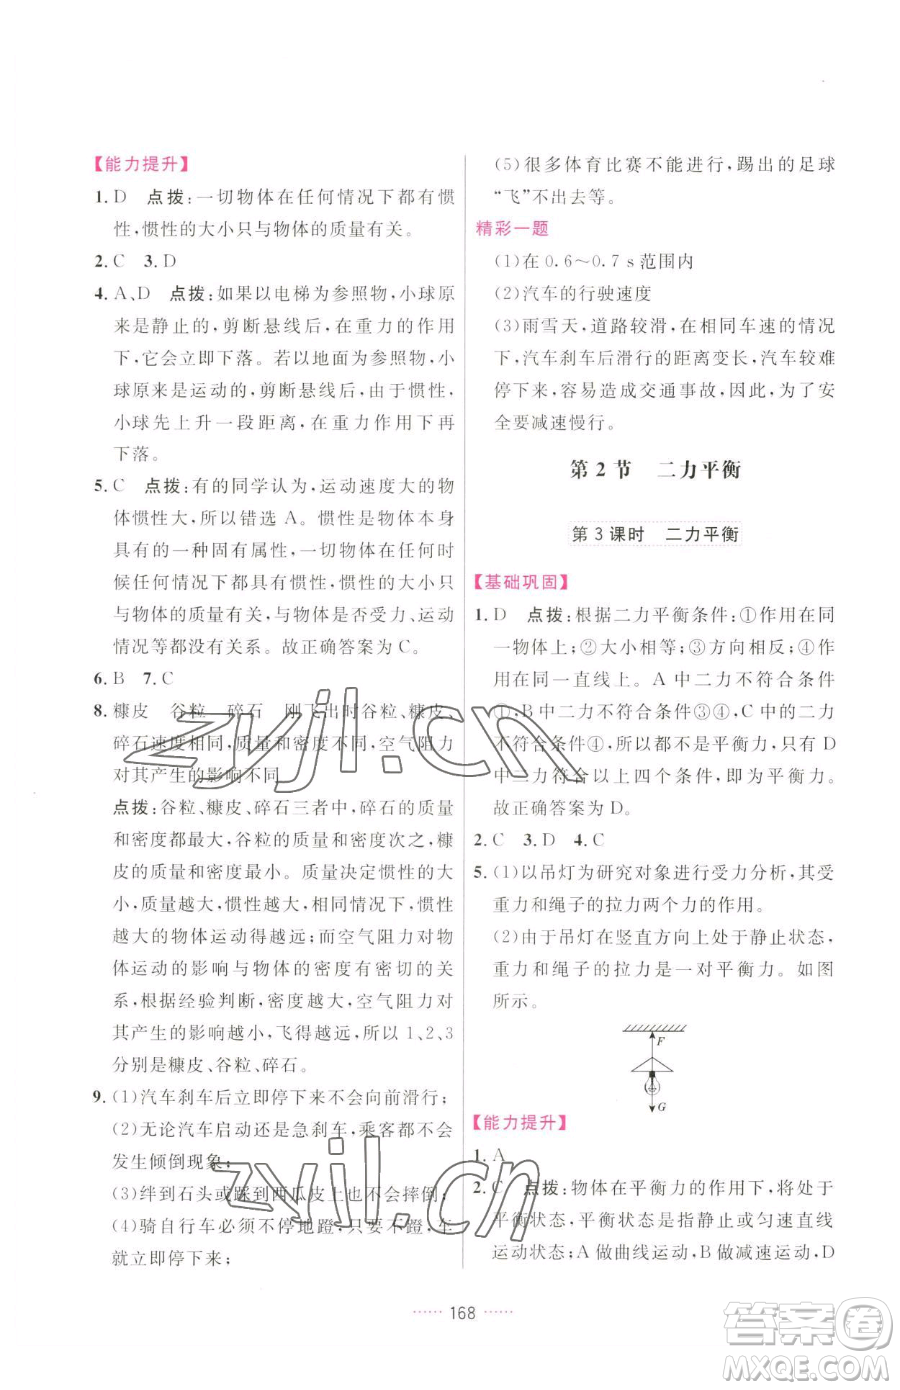 【能力提升】
1. D　点拨:一切物体在任何情况下都有惯
性,惯性的大小只与物体的质量有关。
2. C　3. D
4. A、D　点拨:如果以电梯为参照物,小球原
来是静止的,剪断悬线后,在重力的作用
下,它会立即下落。若以地面为参照物,小
球原来是运动的,剪断悬线后,由于惯性,
小球先上升一段距离,在重力作用下再
下落。
5. C　点拨:有的同学认为,运动速度大的物
体惯性大,所以错选 A。惯性是物体本身
具有的一种固有属性,一切物体在任何时
候任何情况下都具有惯性,惯性的大小只
与物体的质量有关,与物体是否受力、运动
情况等都没有关系。故正确答案为 C。
6. B　7. C
8. 糠皮　谷粒　碎石　刚飞出时谷粒、糠皮、
碎石速度相同,质量和密度不同,空气阻力
对其产生的影响不同
点拨:谷粒、糠皮、碎石三者中,碎石的质量
和密度都最大,谷粒的质量和密度次之,糠
皮的质量和密度最小。质量决定惯性的大
小,质量越大,惯性越大,相同情况下,惯性
越大的物体运动得越远;而空气阻力对物
体运动的影响与物体的密度有密切的关
系,根据经验判断,密度越大,空气阻力对
其产生的影响越小,飞得越远,所以 1、2、3
分别是糠皮、谷粒、碎石。
9. (1)汽车刹车后立即停下来不会向前滑行;
(2)无论汽车启动还是急刹车,乘客都不会
发生倾倒现象;
(3)绊到石头或踩到西瓜皮上不会摔倒;
(4)骑自行车必须不停地蹬,只要不蹬,车
就立即停下来;
(5)很多体育比赛不能进行,踢出的足球
“飞”不出去等。
精彩一题
(1)在 0.6～0.7 s 范围内
(2)汽车的行驶速度
(3)雨雪天,道路较滑,在相同车速的情况
下,汽车刹车后滑行的距离变长,汽车较难
停下来,容易造成交通事故,因此,为了安
全要减速慢行。
第 2 节　二力平衡
第 3 课时　二力平衡
【基础巩固】
1. D　点拨:根据二力平衡条件:①作用在同
一物体上;②大小相等;③方向相反;④
作用在同一直线上。A 中二力不符合条件
①,B 中二力不符合条件③④,C 中的二力
不符合条件④,所以都不是平衡力,只有 D
中二力符合以上四个条件,即为平衡力。
故正确答案为 D。
2. C　3. D　4. C
5. (1)以吊灯为研究对象进行受力分析,其受
重力和绳子的拉力两个力的作用。
(2)由于吊灯在竖直方向上处于静止状态,
重力和绳子的拉力是一对平衡力。如图
所示。
F
G
【能力提升】
1. A
2. C　点拨:物体在平衡力的作用下,将处于
平衡状态,平衡状态是指静止或匀速直线
运动状态;A 做曲线运动,B 做减速运动,D
168
zyjl.cn
zyjl.cn
答案圈
MXQE.COM